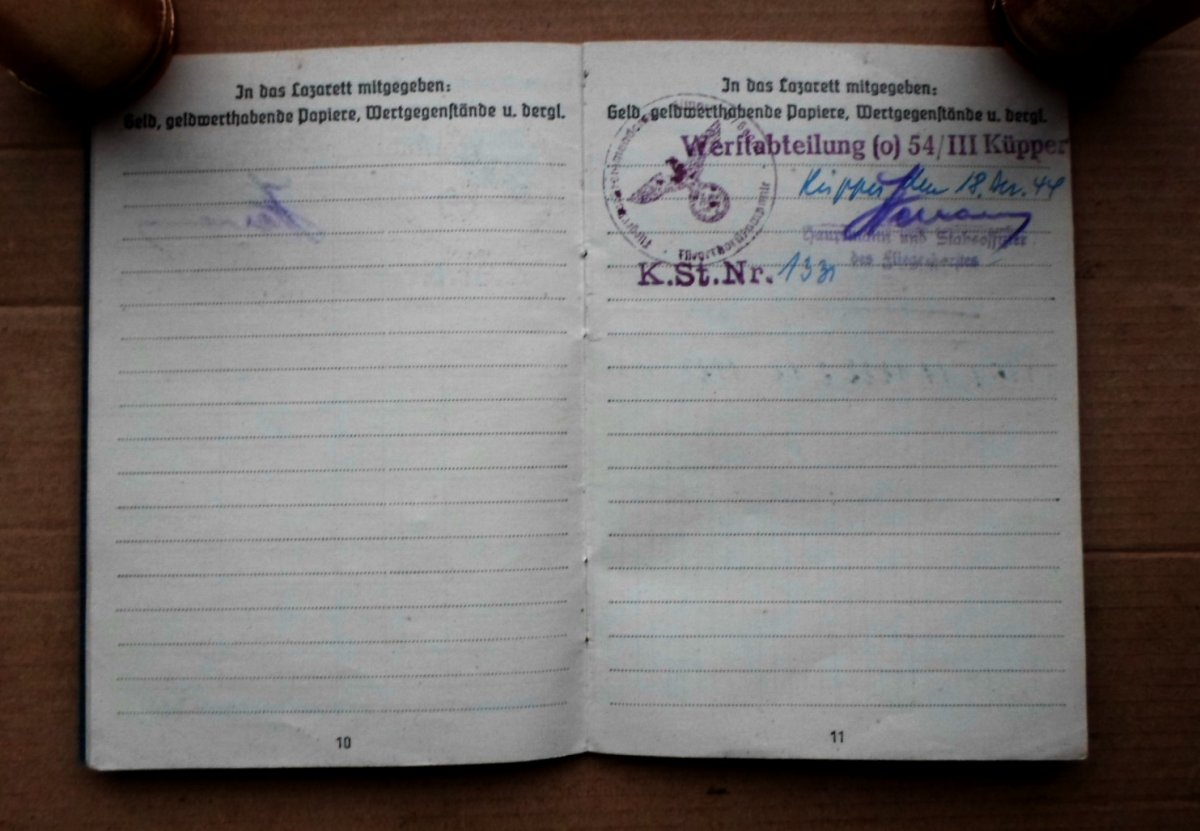 In das Lazarett mitgegeben:
Geld, geldwerthabende Papiere, Wertgegenstände u. dergl.
10
In das Lazarett mitgegeben:
Geld, geldwerthabende Papiere, Wertgegenstände u. dergl.
Werftabteilung (o) 54/III Küpper
Küpper den 18. Dez. 44
Hauptmann und Stabsoffizier
des Fliegerhorstes
K.St.Nr. 133
11